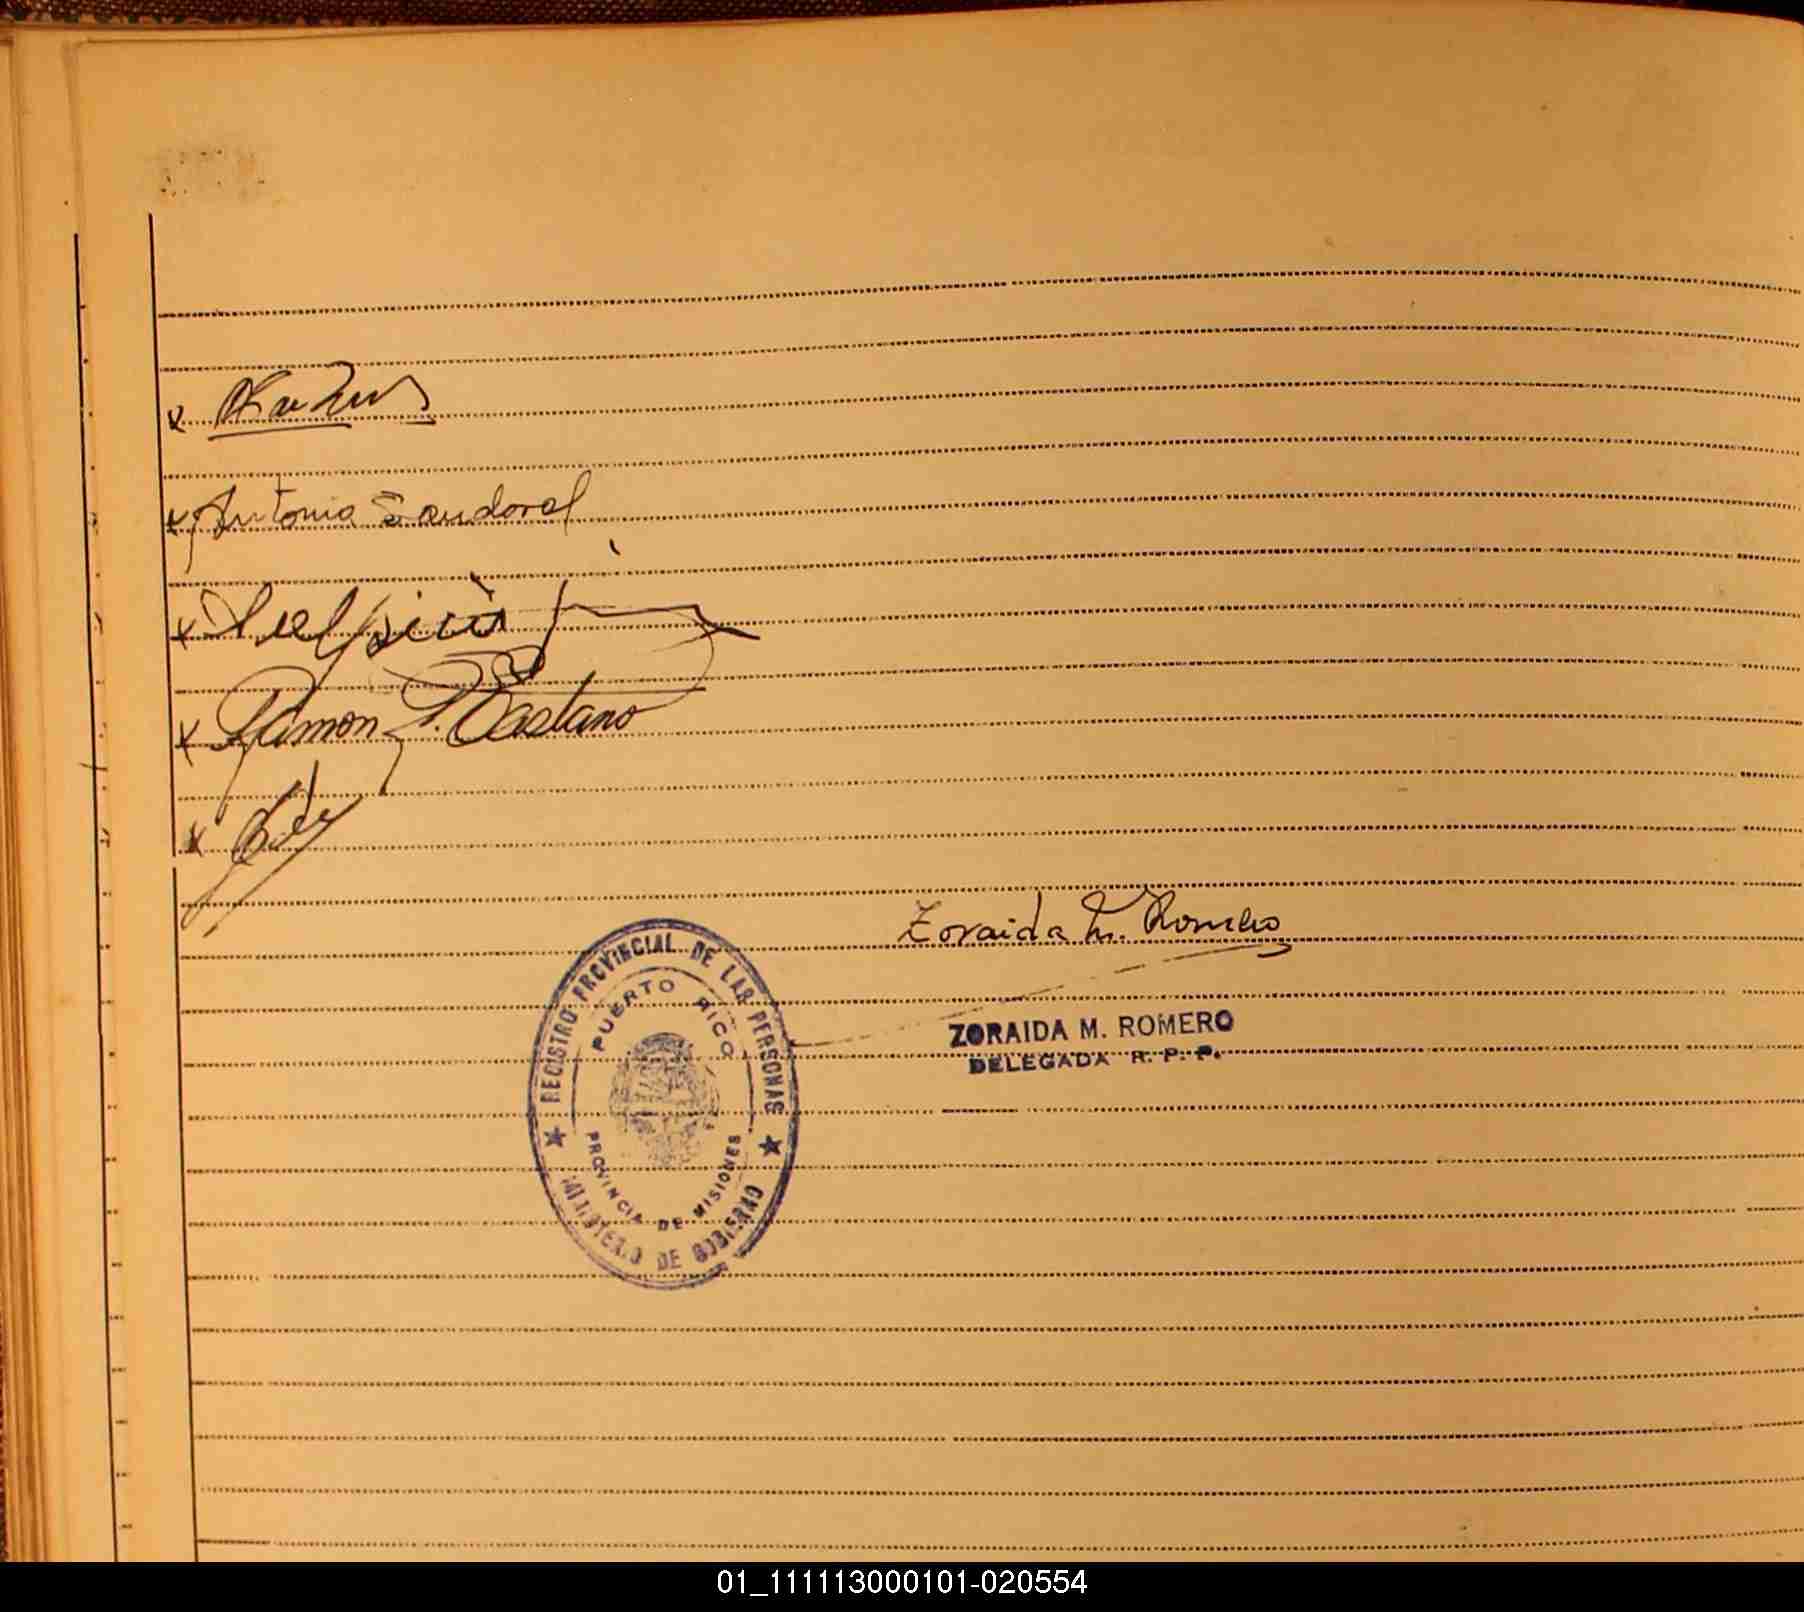 x
x Antonia Sandoval
x
x Ramon Castano
x
Zoraida M. Romero
REGISTRO PROVINCIAL DE LAS PERSONAS
PUERTO RICO
PROVINCIA DE MISIONES
MINISTERIO DE GOBIERNO
ZORAIDA M. ROMERO
DELEGADA R. P. P.
01_111113000101-020554